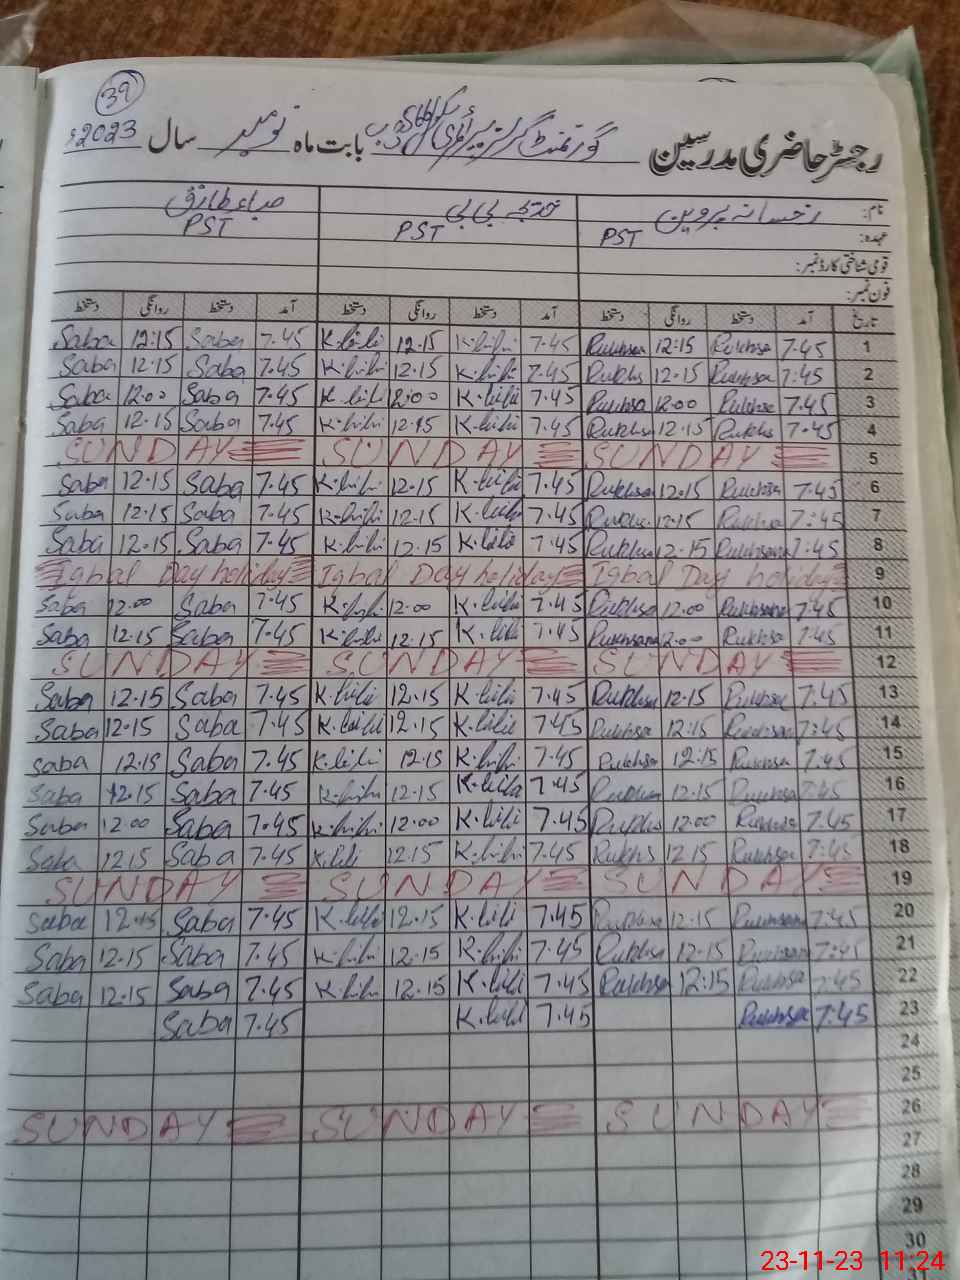 39
رجسٹر حاضری مدرسین گورنمنٹ گرلز پرائمری سکول بابت ماہ نومبر سال 2023ء
نام: رخسانہ پروین خدیجہ بی بی صباء طارق
عہدہ: PST PST PST
قومی شناختی کارڈ نمبر:
فون نمبر:
تاریخ آمد دستخط روانگی دستخط آمد دستخط روانگی دستخط آمد دستخط روانگی دستخط
Saba 12:15 Saba 7.45 K.bibi 12.15 K.bibi 7.45 Rukhsa 12:15 Rukhsa 7.45 1
Saba 12:15 Saba 7.45 K.bibi 12.15 K.bibi 7.45 Rukhs 12.15 Rukhsa 7:45 2
Saba 12.00 Saba 7.45 K.bibi 12.00 K.bibi 7.45 Rukhsa 12.00 Rukhsa 7.45 3
Saba 12.15 Saba 7.45 K.bibi 12.15 K.bibi 7.45 Rukhsa 12.15 Rukhs 7.45 4
SUNDAY SUNDAY SUNDAY 5
Saba 12.15 Saba 7.45 K.bibi 12.15 K.bibi 7.45 Rukhsa 12.15 Rukhsa 7.45 6
Saba 12.15 Saba 7.45 K.bibi 12.15 K.bibi 7.45 Rukhs 12.15 Rukhsa 7:45 7
Saba 12.15 Saba 7.45 K.bibi 12.15 K.bibi 7.45 Rukhsa 12.15 Rukhsana 7:45 8
Iqbal Day holiday Iqbal Day holiday Iqbal Day holiday 9
Saba 12.00 Saba 7.45 K.bibi 12.00 K.bibi 7.45 Rukhsa 12.00 Rukhsana 7.45 10
Saba 12.15 Saba 7.45 K.bibi 12.15 K.bibi 7.45 Rukhsana 12.00 Rukhsa 7.45 11
SUNDAY SUNDAY SUNDAY 12
Saba 12.15 Saba 7.45 K.bibi 12.15 K.bibi 7.45 Rukhsa 12.15 Rukhsa 7.45 13
Saba 12.15 Saba 7.45 K.bibi 12.15 K.bibi 7.45 Rukhsa 12:15 Rukhsan 7:45 14
Saba 12.15 Saba 7.45 K.bibi 12.15 K.bibi 7.45 Rukhsa 12:15 Rukhsa 7.45 15
Saba 12.15 Saba 7.45 K.bibi 12.15 K.bibi 7.45 Rukhsa 12.15 Rukhsa 7.45 16
Saba 12.00 Saba 7.45 K.bibi 12.00 K.bibi 7.45 Rukhs 12.00 Rukhsa 7.45 17
Saba 12.15 Saba 7.45 K.bibi 12.15 K.bibi 7.45 Rukhs 12.15 Rukhsa 7.45 18
SUNDAY SUNDAY SUNDAY 19
Saba 12.15 Saba 7.45 K.bibi 12.15 K.bibi 7.45 Rukhsa 12.15 Rukhsana 7.45 20
Saba 12.15 Saba 7.45 K.bibi 12.15 K.bibi 7.45 Rukhsa 12.15 Rukhsan 7:45 21
Saba 12.15 Saba 7.45 K.bibi 12.15 K.bibi 7.45 Rukhsa 12:15 Rukhsa 7.45 22
Saba 7.45 K.bibi 7.45 Rukhsa 7:45 23
24
25
SUNDAY SUNDAY SUNDAY 26
27
28
29
30
31
23-11-23 11:24